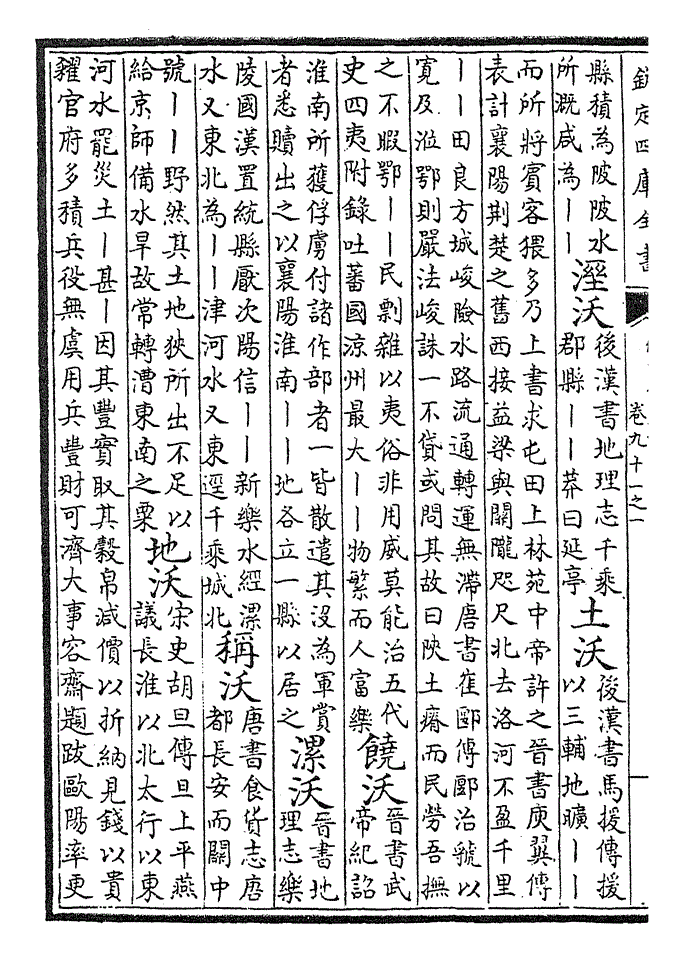 欽定四庫全書
卷九十一之一
縣積為陂陂水
所溉咸為丨丨
溼沃
後漢書地理志千乘
郡縣丨丨莽曰延亭
土沃
後漢書馬援傳援
以三輔地曠丨丨
而所將賓客猥多乃上書求屯田上林苑中帝許之晉書庾翼傳
表計襄陽荆楚之舊西接益梁與關隴咫尺北去洛河不盈千里
丨丨田良方城峻險水路流通轉運無滯唐書崔郾傳郾治虢以
寛及涖鄂則嚴法峻誅一不貸或問其故曰陝土瘠而民勞吾撫
之不暇鄂丨丨民剽雜以夷俗非用威莫能治五代
史四夷附錄吐蕃國涼州最大丨丨物繁而人富樂
饒沃
晉書武
帝紀詔
淮南所獲俘虜付諸作部者一皆散遣其没為軍賞
者悉贖出之以襄陽淮南丨丨地各立一縣以居之
漯沃
晉書地
理志樂
陵國漢置統縣厭次陽信丨丨新樂水經漯
水又東北為丨丨津河水又東逕千乘城北
稱沃
唐書食貨志唐
都長安而關中
號丨丨野然其土地狹所出不足以
給京師備水旱故常轉漕東南之粟
地沃
宋史胡旦傳旦上平燕
議長淮以北太行以東
河水罷災土丨甚丨因其豐實取其榖帛減價以折納見錢以貴
糴官府多積兵役無虞用兵豐財可濟大事容齋題跋歐陽率更